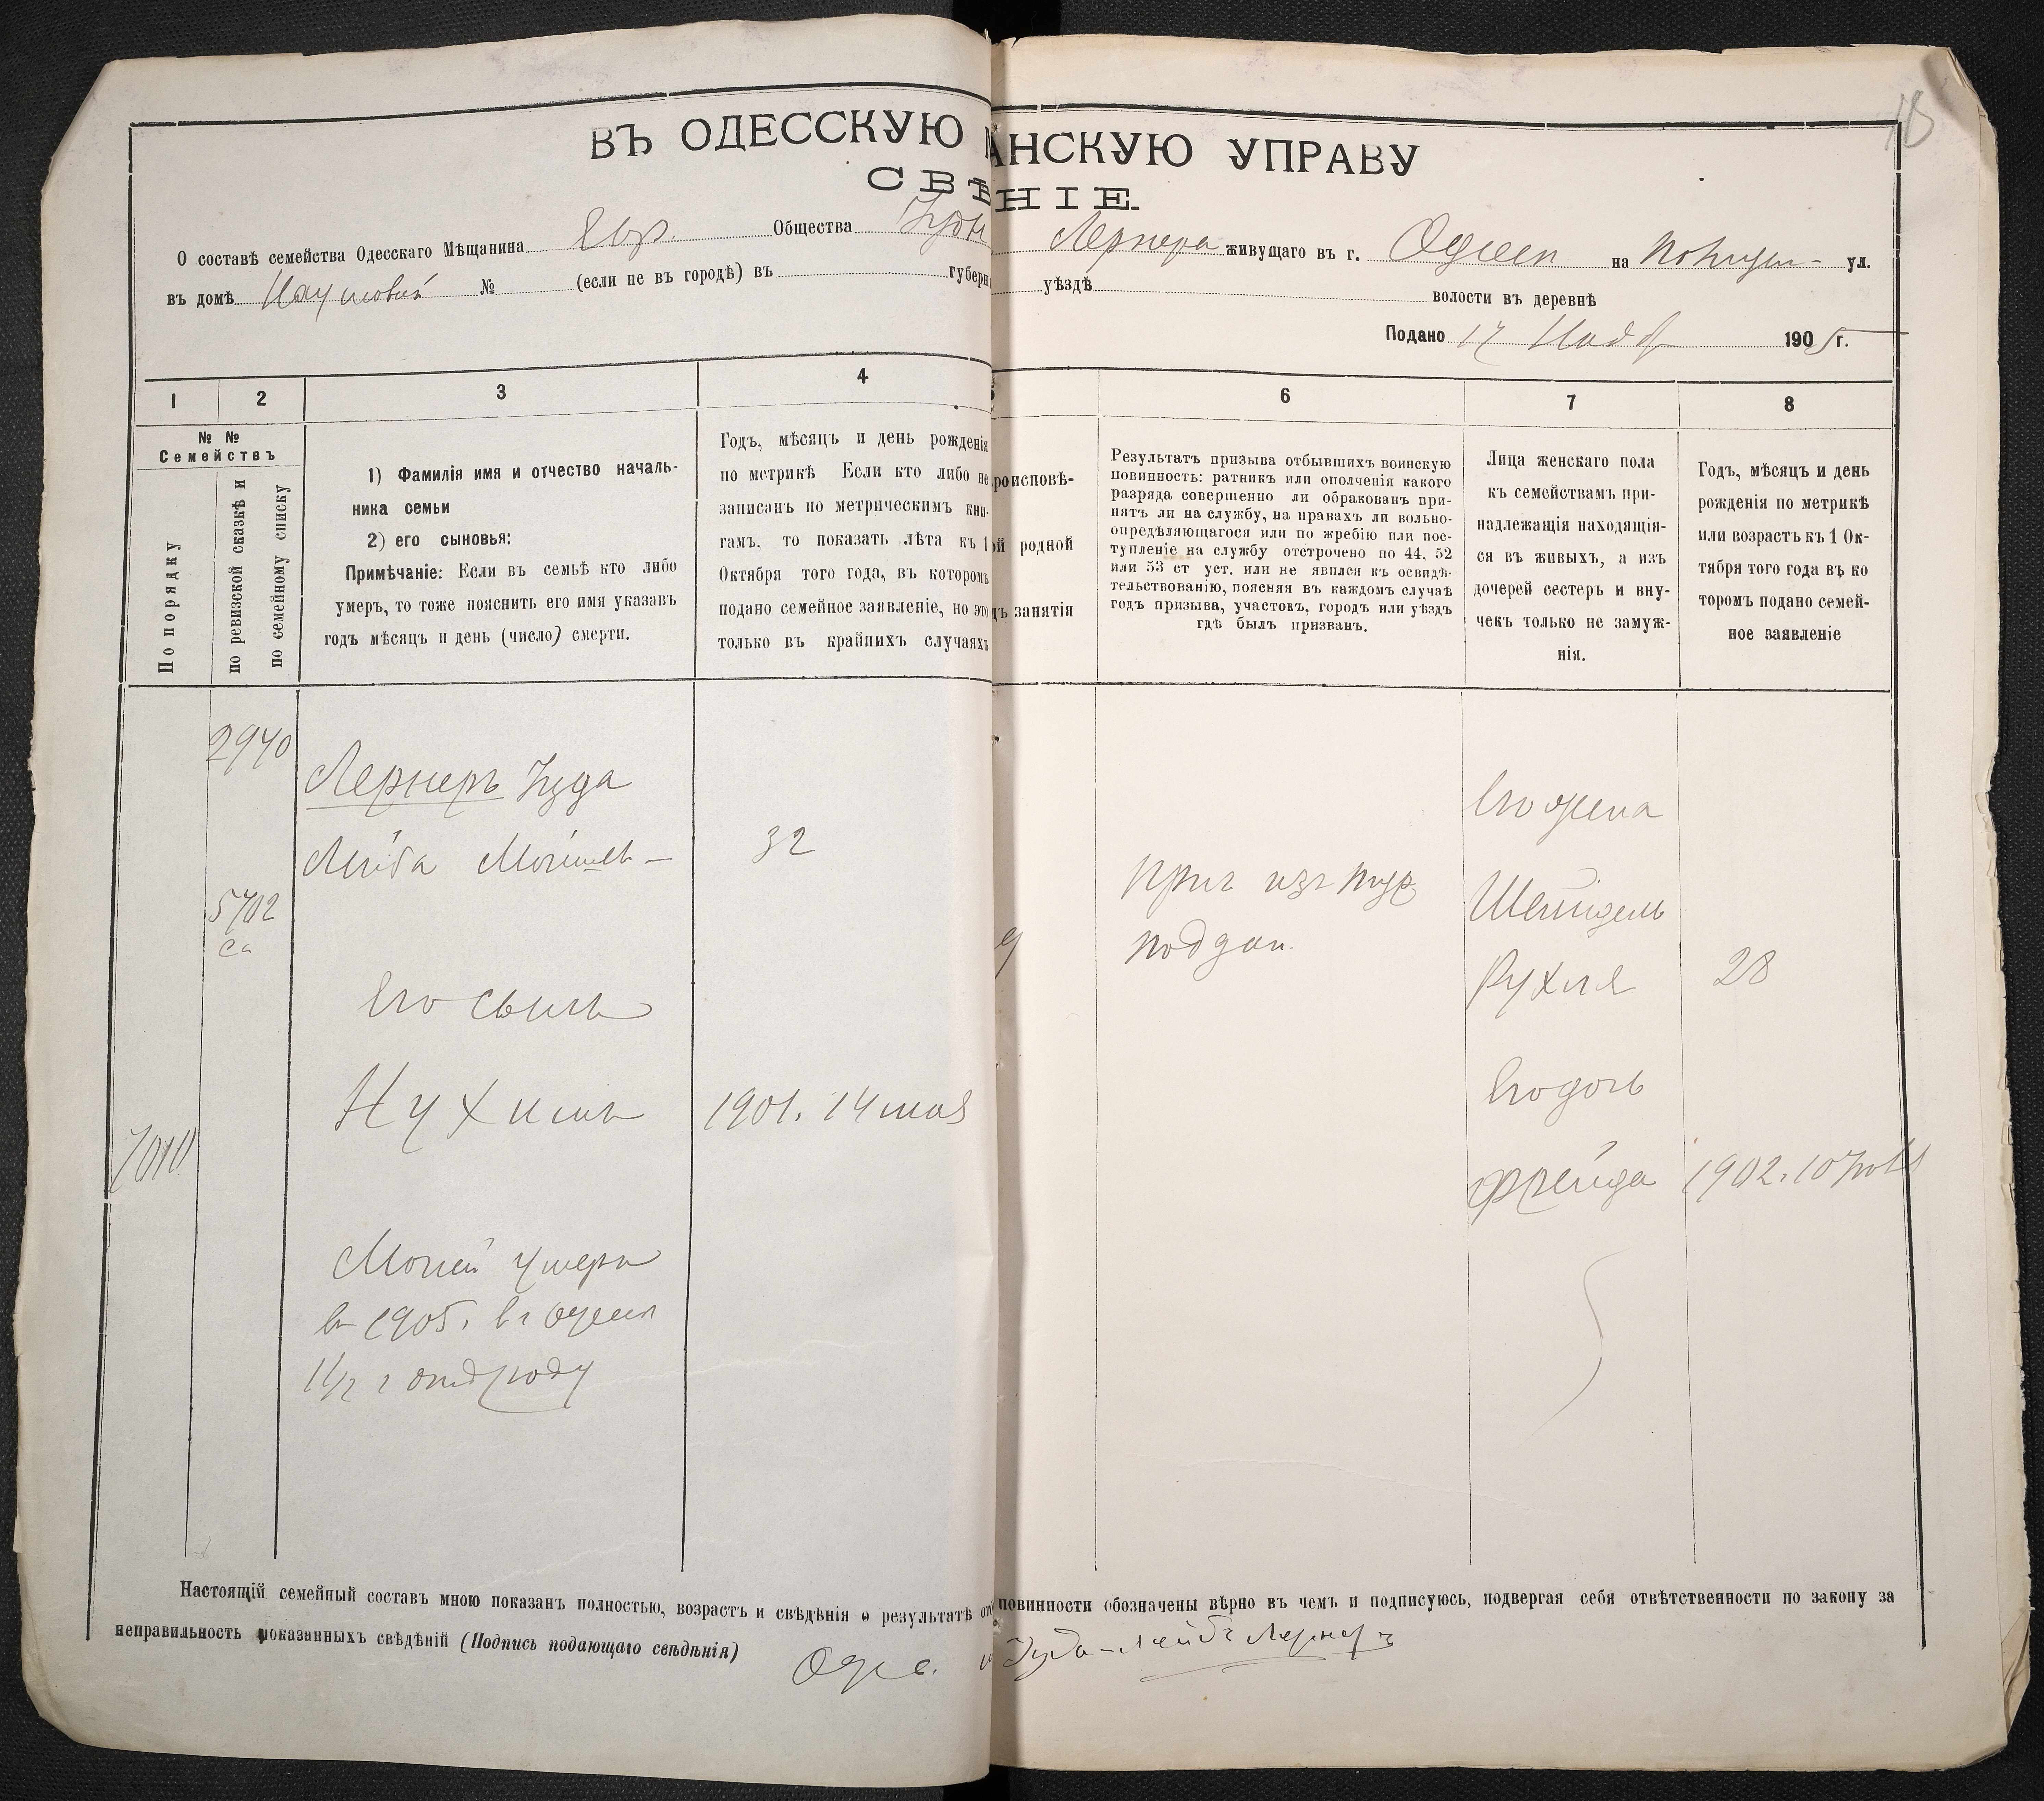 18
ВЪ ОДЕССКУЮ АНСКУЮ УПРАВУ
СВѢ НІЕ.
О составѣ семейства Одесскаго Мѣщанина Евр. Общества Лернера живущаго въ г. Одессѣ на ул.
въ домѣ № (если не въ городѣ) въ губерн уѣздѣ волости въ деревнѣ
Подано 17 1905 г.
1 2 3 4 6 7 8
№ № Семействъ
По порядку
по ревизской сказкѣ и
по семейному списку
1) Фамилія имя и отчество началь-
ника семьи
2) его сыновья:
Примѣчаніе: Если въ семьѣ кто либо
умеръ, то тоже пояснить его имя указавъ
годъ мѣсяцъ и день (число) смерти.
Годъ, мѣсяцъ и день рожденія
по метрикѣ Если кто либо не
записанъ по метрическимъ кни-
гамъ, то показать лѣта къ 1
Октября того года, въ которомъ
подано семейное заявленіе, но это
только въ крайнихъ случаяхъ
роисповѣ-
ой родной
дъ занятія
Результатъ призыва отбывшихъ воинскую
повинность: ратникъ или ополченія какого
разряда совершенно ли обракованъ при-
нятъ ли на службу, на правахъ ли вольно-
опредѣляющагося или по жребію или пос-
тупленіе на службу отстрочено по 44, 52
или 53 ст уст. или не явился къ освидѣ-
тельствованію, поясняя въ каждомъ случаѣ
годъ призыва, участокъ, городъ или уѣздъ
гдѣ былъ призванъ.
Лица женскаго пола
къ семействамъ при-
надлежащія находящія-
ся въ живыхъ, а изъ
дочерей сестеръ и вну-
чекъ только не замуж-
нія.
Годъ, мѣсяцъ и день
рожденія по метрикѣ
или возрастъ къ 1 Ок-
тября того года въ ко
торомъ подано семей-
ное заявленіе
2940
Лернеръ Іуда
Лейба 32
5702
са
Его сынъ
Нухимъ 1901. 14 мая
7010
Мошей умеръ
въ 1905. въ Одессѣ
1 1/2 г отъ роду
изъ тур
поддан.
Его жена
Шейндель
Рухля 28
Его дочь
Фрейда 1902. 10
Настоящій семейный составъ мною показанъ полностью, возрастъ и свѣдѣнія о результатѣ от повинности обозначены вѣрно въ чемъ и подписуюсь, подвергая себя отвѣтственности по закону за
неправильность показанныхъ свѣдѣній (Подпись подающаго свѣдѣнія)
Одес. Іуда-Лейбъ Лернеръ